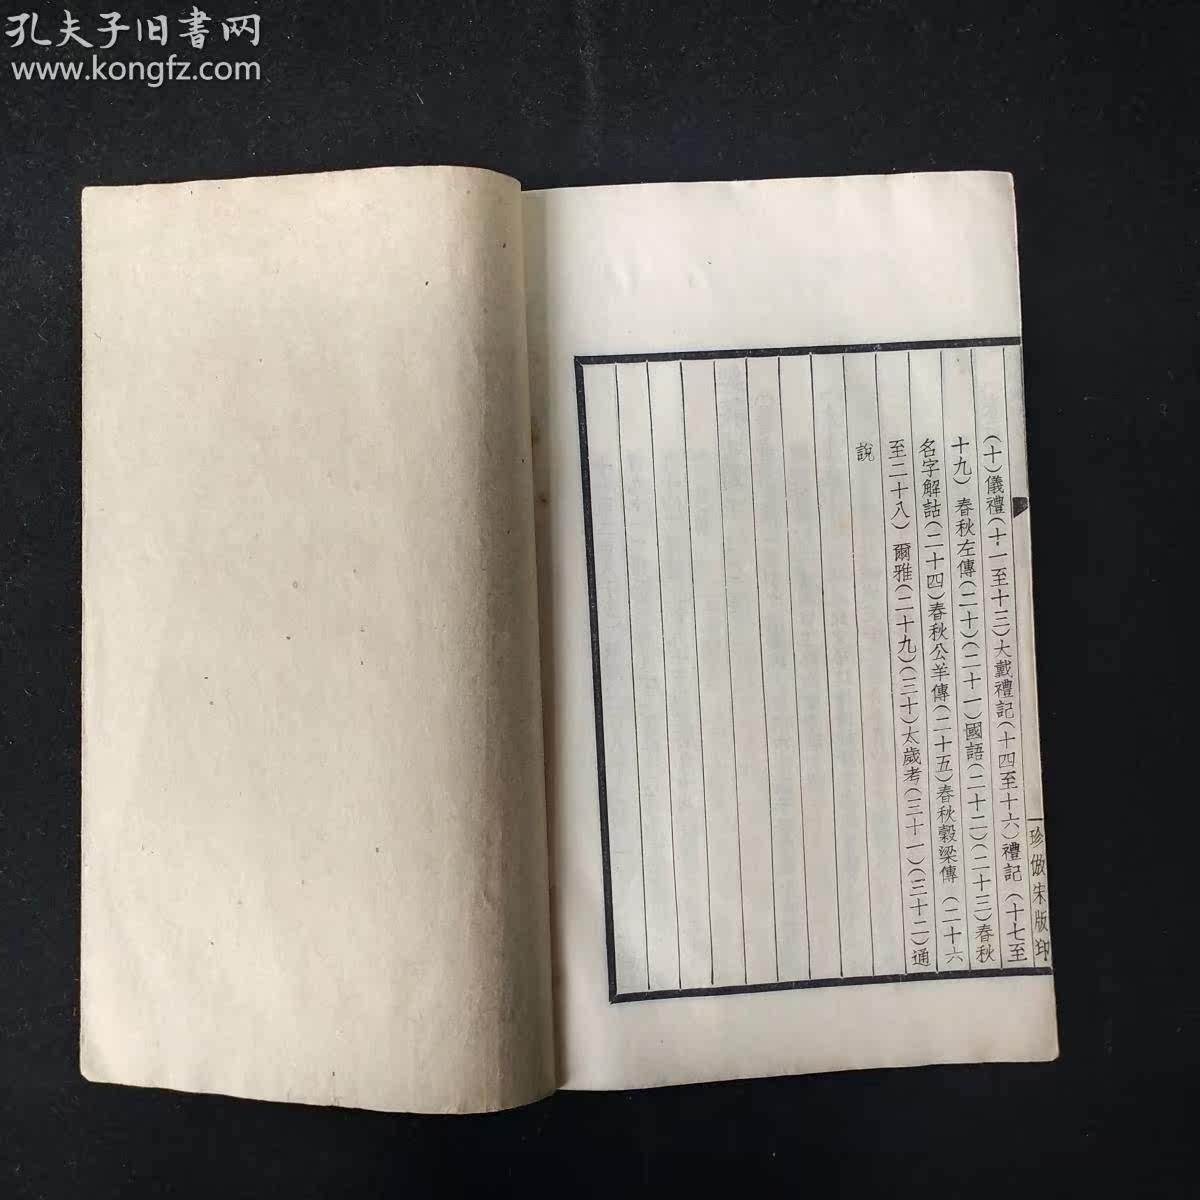 孔夫子旧書网
www.kongfz.com
(十)儀禮(十一至十三)大戴禮記(十四至十六)禮記(十七至
十九)春秋左傳(二十)(二十一)國語(二十二)(二十三)春秋
名字解詁(二十四)春秋公羊傳(二十五)春秋穀梁傳(二十六
至二十八)爾雅(二十九)(三十)太歲考(三十一)(三十二)通
說
珍倣宋版印